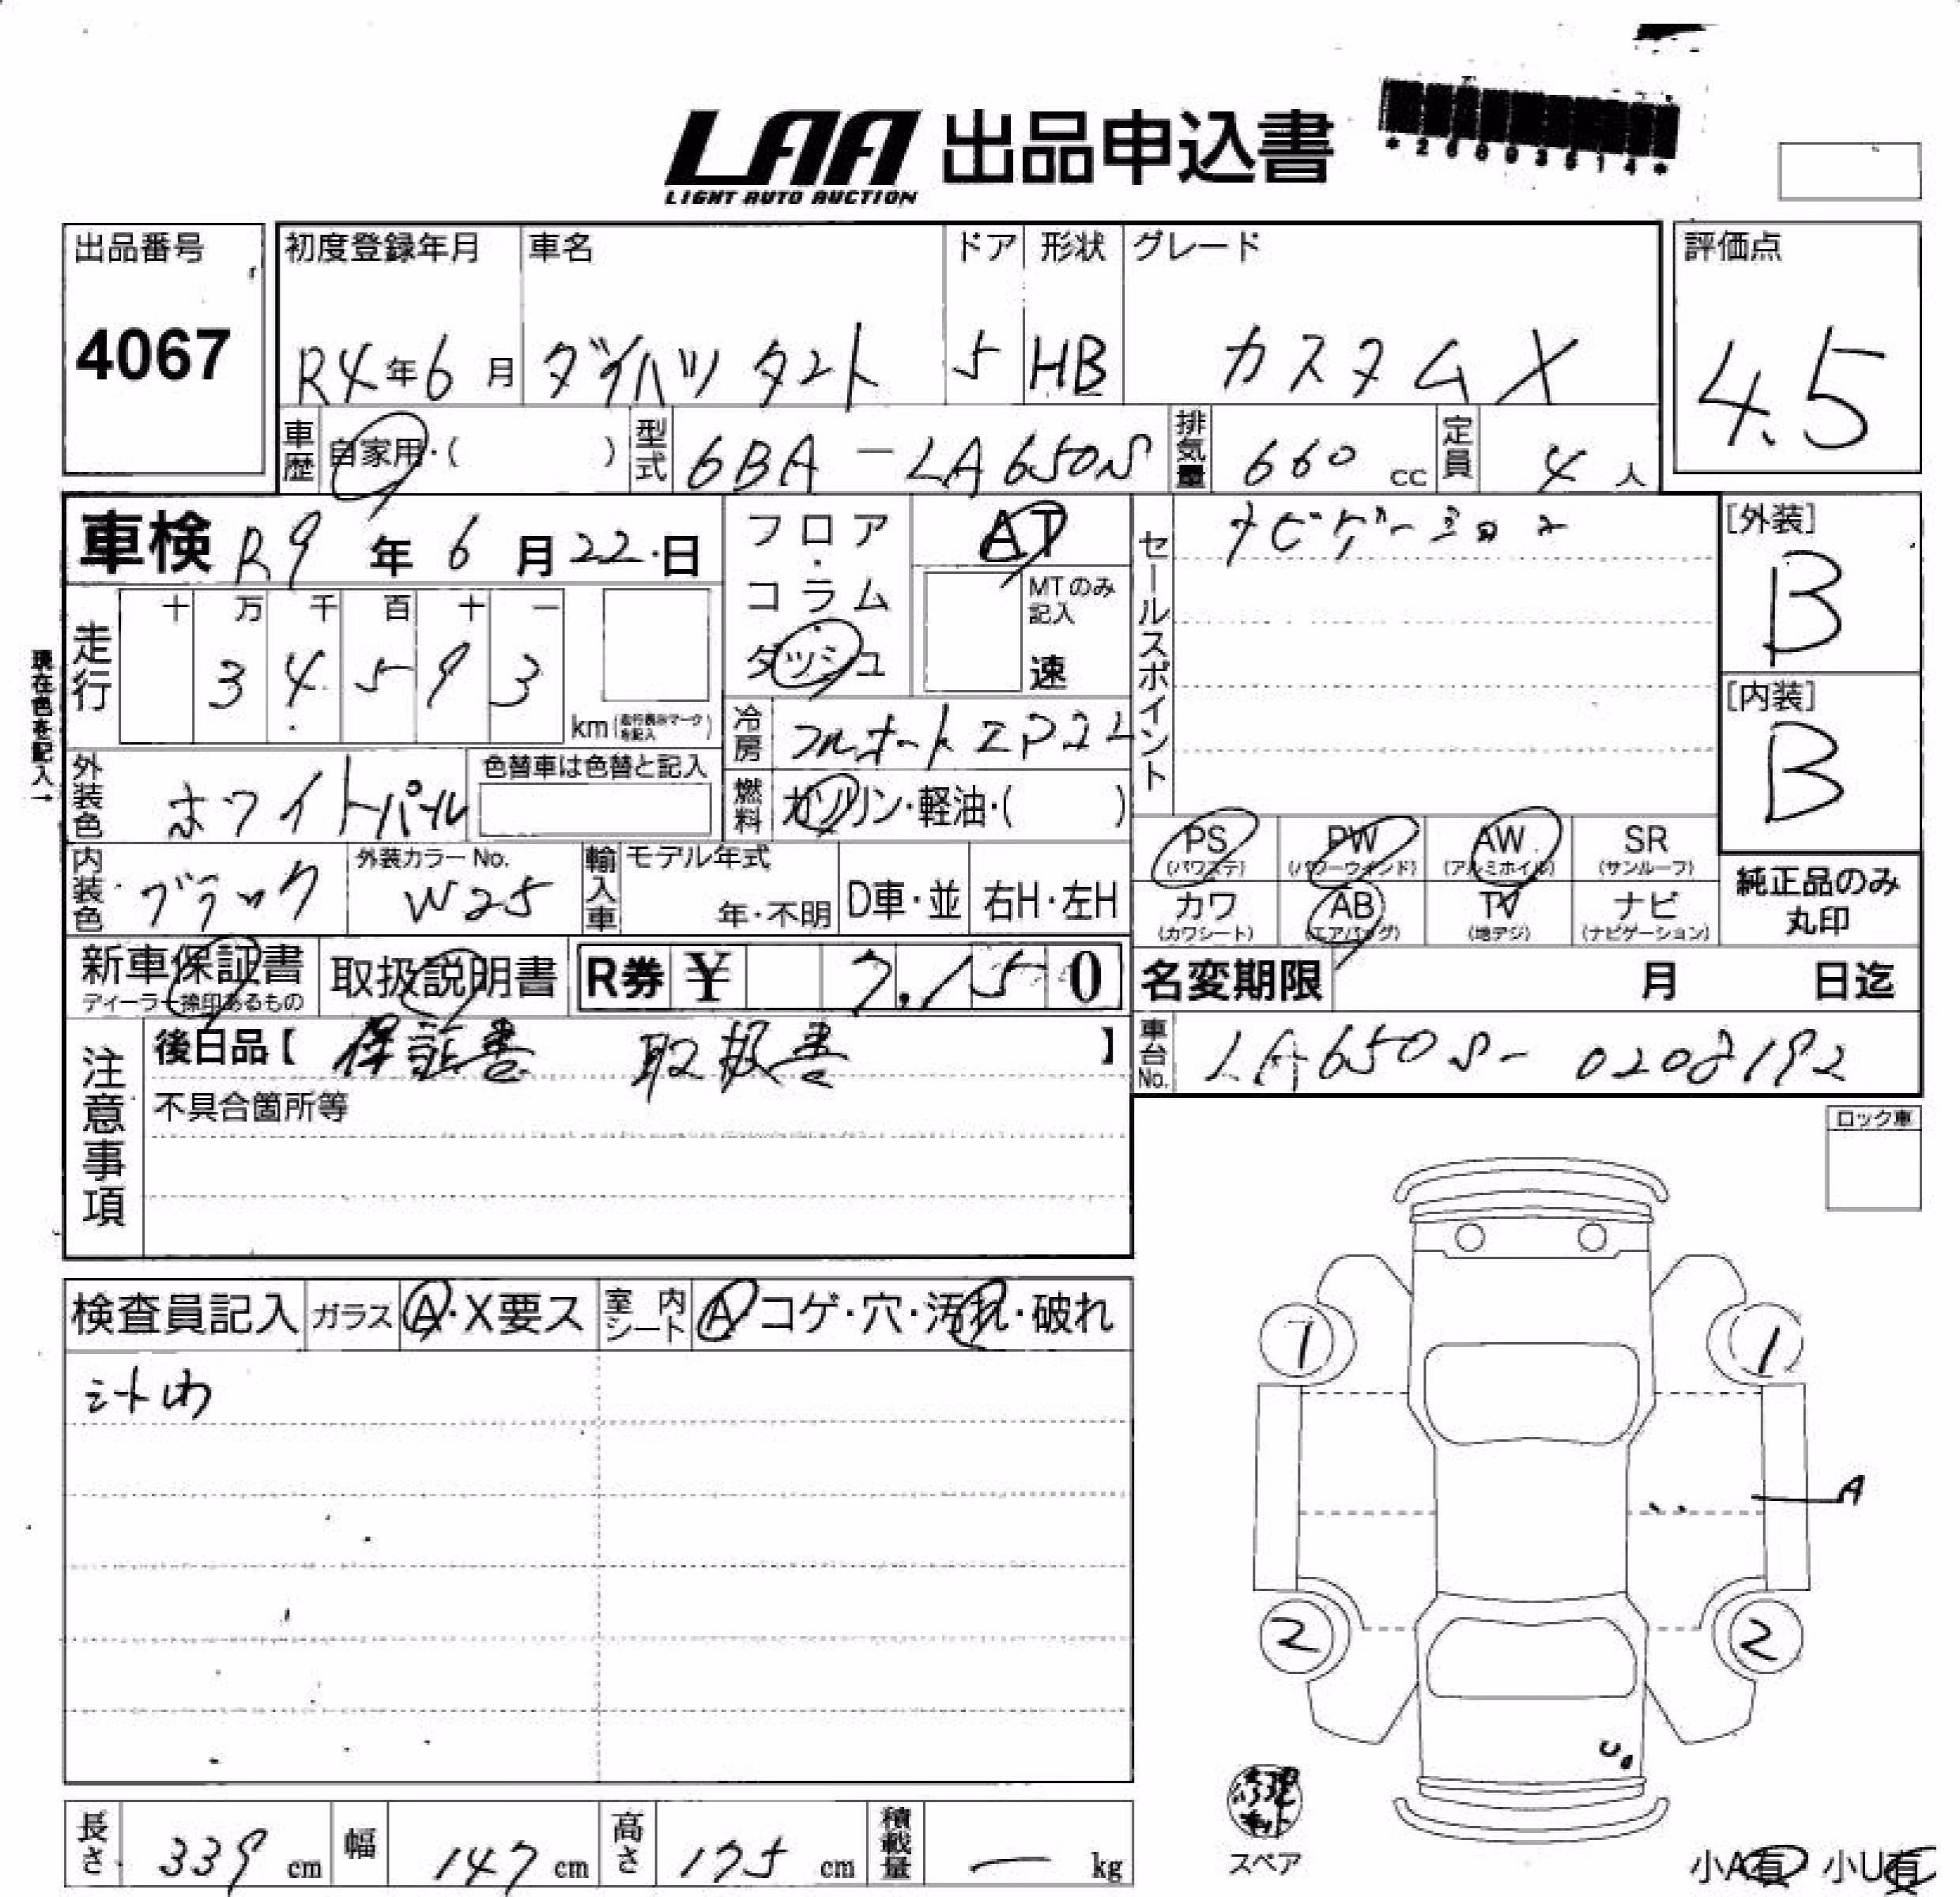 LAA 出品申込書
LIGHT AUTO AUCTION
*26093614*
出品番号 初度登録年月 車名 ドア 形状 グレード 評価点
4067 R4年6月 ダイハツ タント 5 HB カスタム X 4.5
車歴 自家用・( ) 型式 6BA-LA650S 排気量 660 cc 定員 4 人
車検 R9年 6月 22日 フロア・コラム・ダッシュ AT MTのみ記入 速
セールスポイント ナビゲーション
[外装] B
[内装] B
現在色を記入→
走行 十 万 千 百 十 一
3 4 5 9 3 km (走行表示マークを記入)
冷房 フルオートエアコン
外装色 ホワイトパール 色替車は色替と記入
燃料 ガソリン・軽油・( )
内装色 ブラック 外装カラーNo. W25 輸入車 モデル年式 年・不明 D車・並 右H・左H
PS (パワステ) PW (パワーウインド) AW (アルミホイル) SR (サンルーフ)
カワ (カワシート) AB (エアバッグ) TV (地デジ) ナビ (ナビゲーション)
純正品のみ丸印
新車保証書 ディーラー捺印あるもの 取扱説明書 R券 ¥ 7,150
名変期限 月 日迄
注意事項 後日品【 保証書 取扱書 】
車台No. LA650S-0208192
不具合箇所等
ロック車
検査員記入 ガラス A・X要ス 室内シート A コゲ・穴・汚れ・破れ
1 1
A
2 2
U
スペア
小A有 小U有
長さ 339 cm 幅 147 cm 高さ 175 cm 積載量 — kg